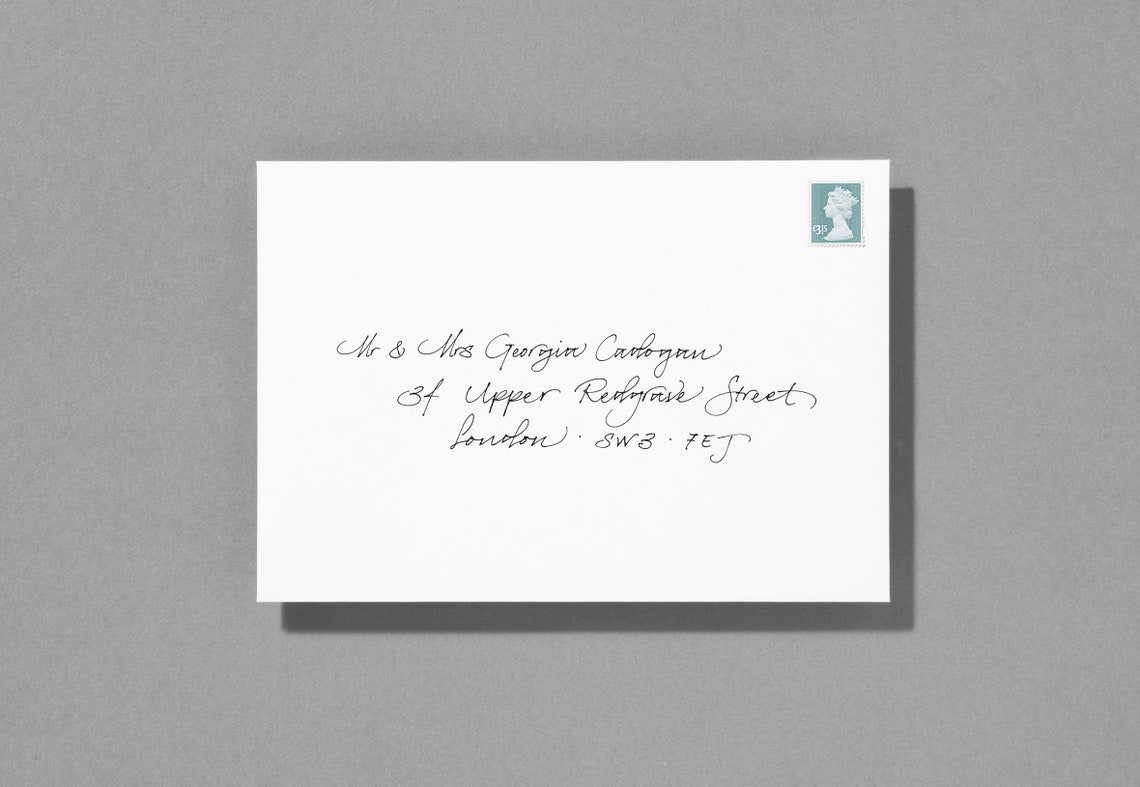 £3.15
Mr & Mrs Georgia Cadogan
34 Upper Redgrave Street
London · SW3 · 7EJ